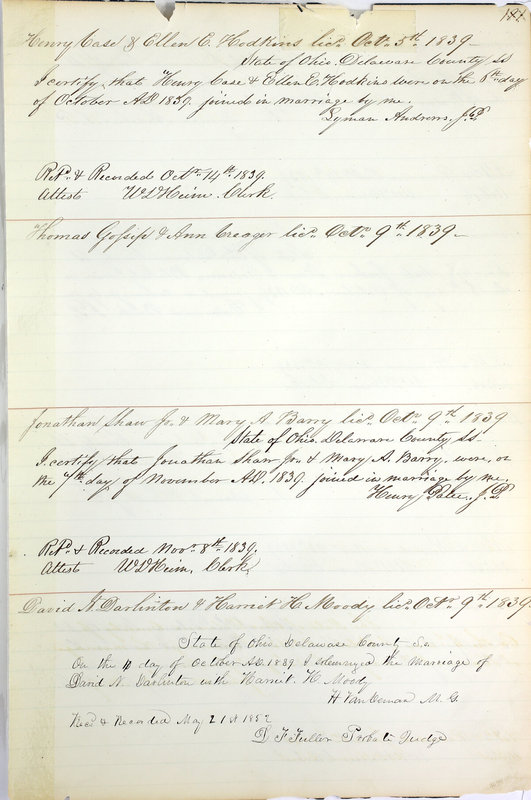 187
Henry Case & Ellen E. Hodkins licd. Octr. 5th. 1839–
State of Ohio Delaware County ss
I certify, that Henry Case & Ellen E. Hodkins were on the 6th day
of October AD 1839. joined in marriage by me.
Lyman Andrews, J.P.
Retd. & Recorded Octr. 14th. 1839.
Attest W D Heim. Clerk.
Thomas Gossip & Ann Creager licd. Octr. 9th. 1839–
Jonathan Shaw Jr. & Mary A. Barry licd. Octr. 9th 1839
State of Ohio Delaware County ss.
I certify that Jonathan Shaw Jr. & Mary A. Barry were, on
the 7th day of November AD. 1839. joined in marriage by me.
Henry J.P.
Retd. & Recorded Novr. 8th. 1839.
Attest W D Heim, Clerk.
David N. Darlinton & Harriet H. Moody licd. Octr. 9th. 1839
State of Ohio Delaware County Sc.
On the day of October A.D. 1839 I solemnized the Marriage of
David N. Darlinton with Harriet. H. Moody
H Van Deman M. G.
Recd & Recorded May 21st 1852
D T Fuller Probate Judge